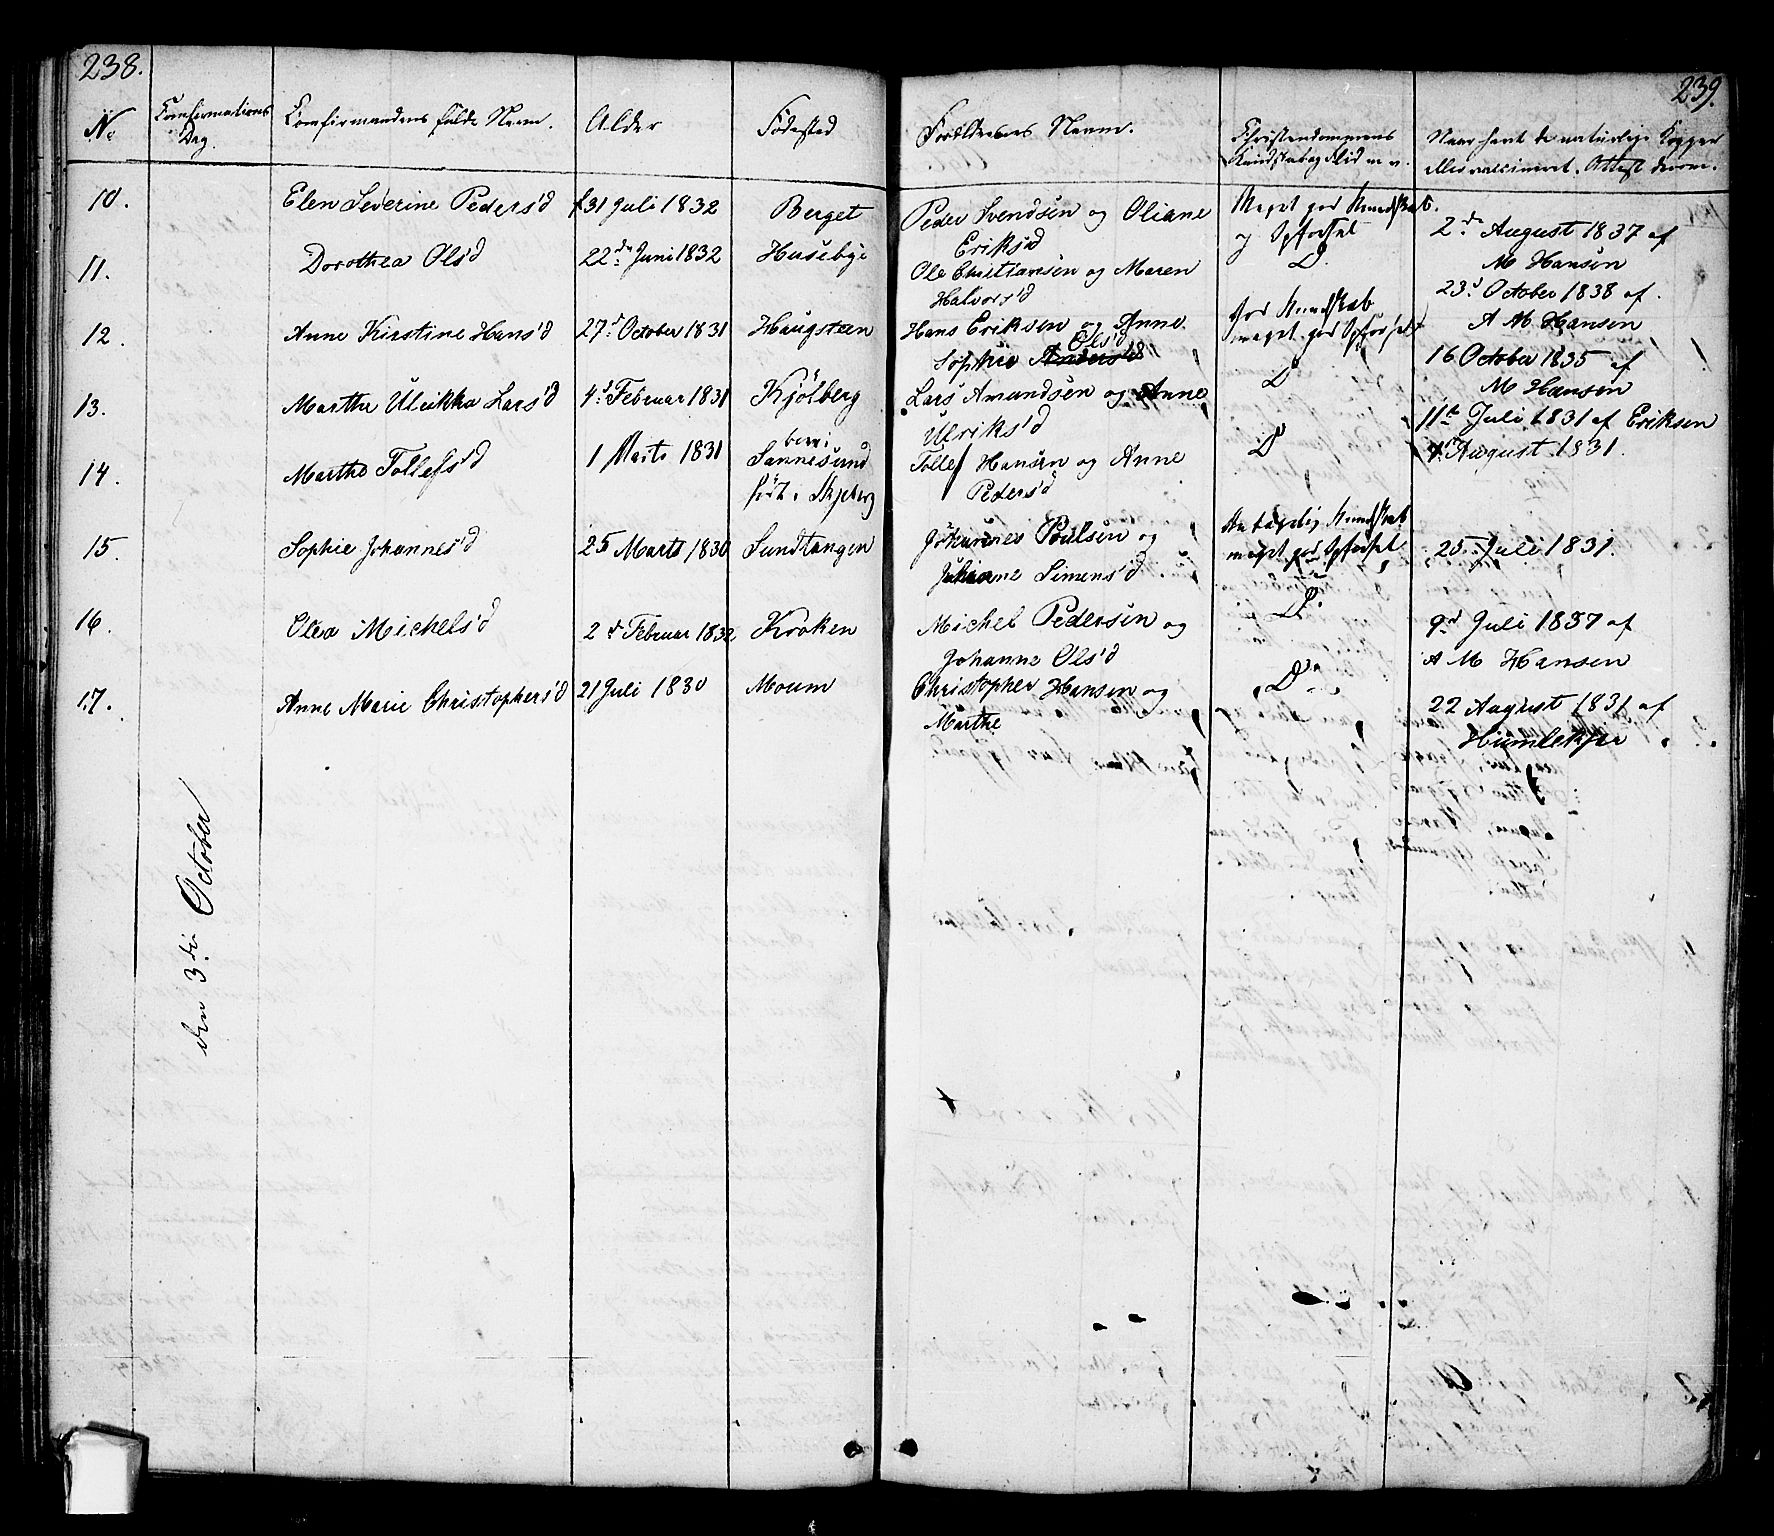 238.
No
Confirmations Dag.
Confirmandens fulde Navn.
Alder
Fødested
10.
Elen Severine Peders'd
31 Juli 1832
Berget
11.
Dorothea Ols'd
22de Juni 1832
Husebye
12.
Anne Kirstine Hans'd
27d October 1831
Haugsteen
13.
Marthe Ulrikka Lars'd
4d Februar 1831
Kjölberg
14.
Marthe Tollefs'd
1 Marts 1831
boer i
Sannesund
född i Skjeberg
15.
Sophie Johannes'd
25 Marts 1830
Sundtangen
16.
Olea Michels'd
2d Februar 1832
Kroken
17.
Anne Marie Christophers'd
21 Juli 1830
Moum
den 3die October
239.
Forældrenes Navne.
Christendommens
Kundskab og Flid m. v.
Naar havt de naturlige Kopper
eller vaccineret. Attest derom.
Peder Svendsen og Oliane
Eriks'd
Meget god Kundskab
og Opførsel
2de August 1837 af
M Hansen
Ole Christiansen og Maren
Halvors'd
Do
23d October 1838 af
A M Hansen
Hans Eriksen og Anne
Ols'd
Sophie Anders'd
God Kundskab
meget god Opførsel
16 October 1835 af
M Hansen
Lars Amundsen og Anne
Ulriks'd
Do
11te Juli 1831 af Eriksen
Tollef Hansen og Anne
Peders'd
Do
4 August 1831.
Johannes Poulsen og
Johanne Simens'd
Antagelig Kundskab
meget god Opførsel
25 Juli 1831.
Michel Pedersen og
Johanne Ols'd
Do
9d Juli 1837 af
A M Hansen
Christopher Hansen og
Marthe
Do
22 August 1831 af
Humlekjær